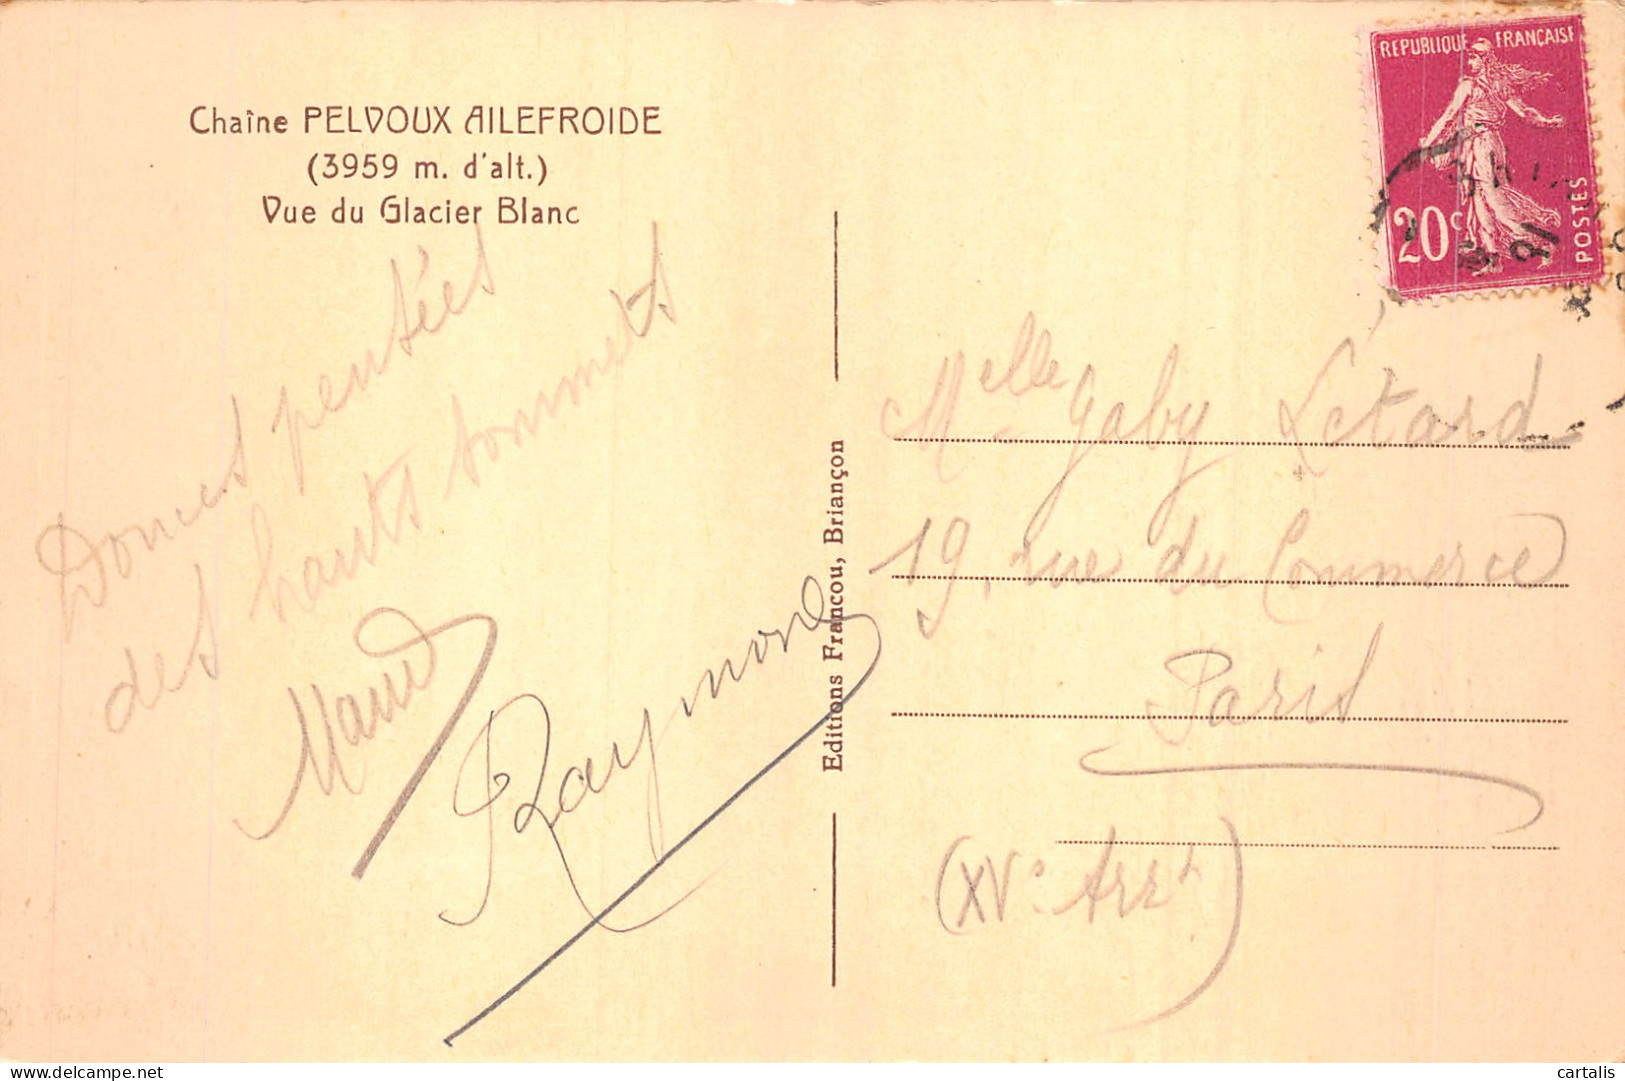 Chaîne PELVOUX AILEFROIDE
(3959 m. d'alt.)
Vue du Glacier Blanc
Douces pensées
des hauts sommets
Maud
Raymond
Editions Francou, Briançon
REPUBLIQUE FRANÇAISE
20c
POSTES
Melle Gaby Letard
19, rue du Commerce
Paris
(XVe Arrt)
cartalis